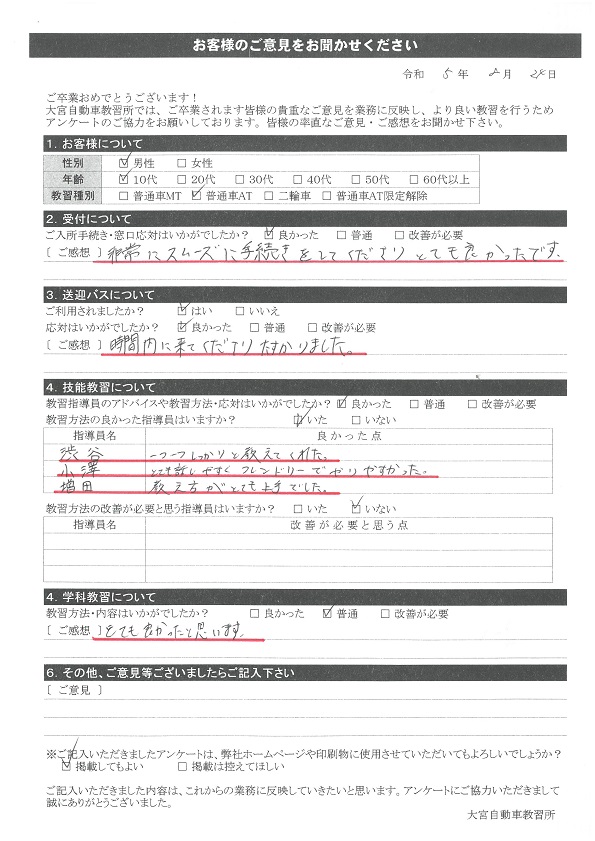 お客様のご意見をお聞かせください
令和 5 年 2 月 28 日
ご卒業おめでとうございます！
大宮自動車教習所では、ご卒業されます皆様の貴重なご意見を業務に反映し、より良い教習を行うため
アンケートのご協力をお願いしております。皆様の率直なご意見・ご感想をお聞かせ下さい。
1. お客様について
性別 ☑ 男性 ☐ 女性
年齢 ☑ 10代 ☐ 20代 ☐ 30代 ☐ 40代 ☐ 50代 ☐ 60代以上
教習種別 ☐ 普通車MT ☑ 普通車AT ☐ 二輪車 ☐ 普通車AT限定解除
2. 受付について
ご入所手続き・窓口応対はいかがでしたか？ ☑ 良かった ☐ 普通 ☐ 改善が必要
[ ご感想 ] 非常にスムーズに手続きをしてくださりとても良かったです.
3. 送迎バスについて
ご利用されましたか？ ☑ はい ☐ いいえ
応対はいかがでしたか？ ☑ 良かった ☐ 普通 ☐ 改善が必要
[ ご感想 ] 時間内に来てくださりたすかりました。
4. 技能教習について
教習指導員のアドバイスや教習方法・応対はいかがでしたか？ ☑ 良かった ☐ 普通 ☐ 改善が必要
教習方法の良かった指導員はいますか？ ☑ いた ☐ いない
指導員名 良かった点
渋谷 一つ一つしっかりと教えてくれた。
小澤 とても話しやすくフレンドリーでやりやすかった。
増田 教え方がとても上手でした。
教習方法の改善が必要と思う指導員はいますか？ ☐ いた ☑ いない
指導員名 改善が必要と思う点
4. 学科教習について
教習方法・内容はいかがでしたか？ ☐ 良かった ☑ 普通 ☐ 改善が必要
[ ご感想 ] とても良かったと思います.
6. その他、ご意見等ございましたらご記入下さい
[ ご意見 ]
※ご記入いただきましたアンケートは、弊社ホームページや印刷物に使用させていただいてもよろしいでしょうか？
☑ 掲載してもよい ☐ 掲載は控えてほしい
ご記入いただきました内容は、これからの業務に反映していきたいと思います。アンケートにご協力いただきまして
誠にありがとうございました。
大宮自動車教習所